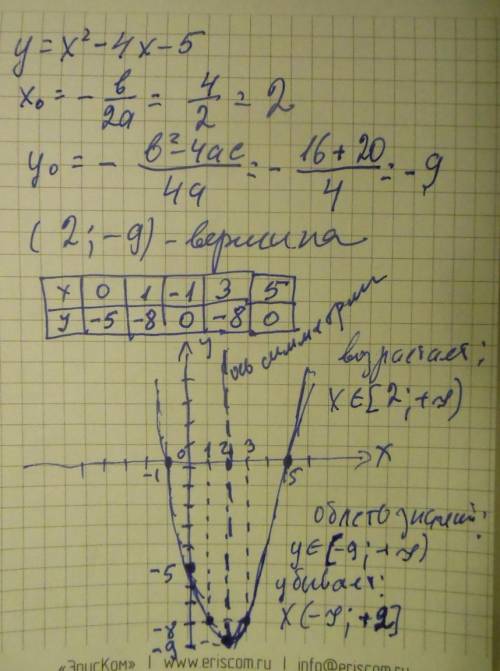 y = x² - 4x - 5
x₀ = - в/2a = 4/2 = 2
y₀ = - в² - 4ac/4a = - 16 + 20/4 = - 9
(2; -9) - вершина
x 0 1 -1 3 5
y -5 -8 0 -8 0
y
ось симметрии
возрастает;
x ∈ [2; +∞)
-1 0 1 2 3 5 x
область значений:
y ∈ [-9; +∞)
-5
убывает:
x (-∞; +2]
-8
-9
«ЭрисКом» | www.eriscom.ru | info@eriscom.ru